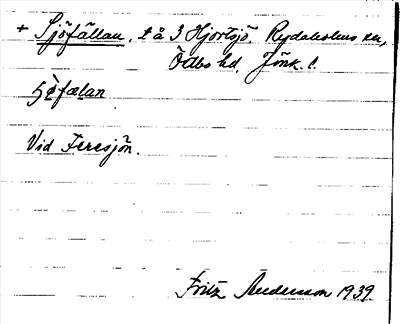 + Sjöfällan, t å 3 Hjortsjö, Rydaholms sn,
Östbo hd, Jönk. l.
ʃø̀fælan
Vid Feresjön.
Fritz Andersson 1939.